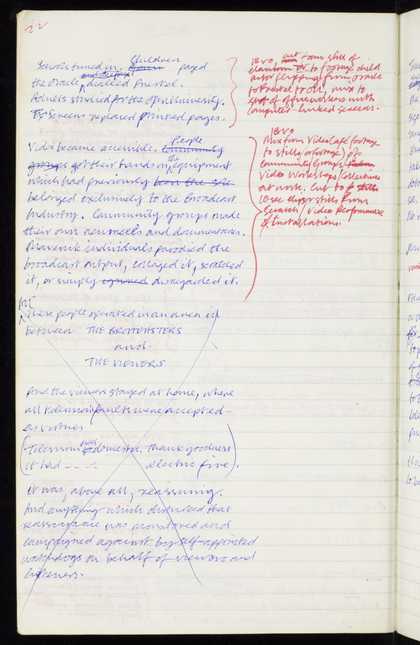 22
Schools tuned in. Children paged
the Oracle, dialled Prestel.
Adults studied for the Open University.
TV Screens replaced printed pages.
Video became accessible. People
got their hands on the equipment
which had previously
belonged exclusively to the Broadcast
Industry. Community groups made
their own newsreels and documentaries.
Maverick individuals parodied the
broadcast output, collaged it, scratched
it, or simply ignored disregarded it.
these people operated in an area
between THE BROADCASTERS
and
THE VIEWERS
And the viewers stayed at home, where
all television faults were accepted
as virtues
(Television domestic, thank goodness
it had - - - : electric fire).
It was, above all, reassuring.
And anything which disturbed that
reassurance was monitored and
campaigned against by self-appointed
watchdogs on behalf of viewers and
listeners.
cut from still of
classroom to footage child
actor flipping from Oracle
to Prestel to OU, mix to
of officeworkers with
computer linked screens.
Mix from Video Cafe footage
to stills or footage of
Community Groups
Video Workshops/Collectives
at work. Cut to
loose clips stills from
Scratch/Video Performance
& Installations.